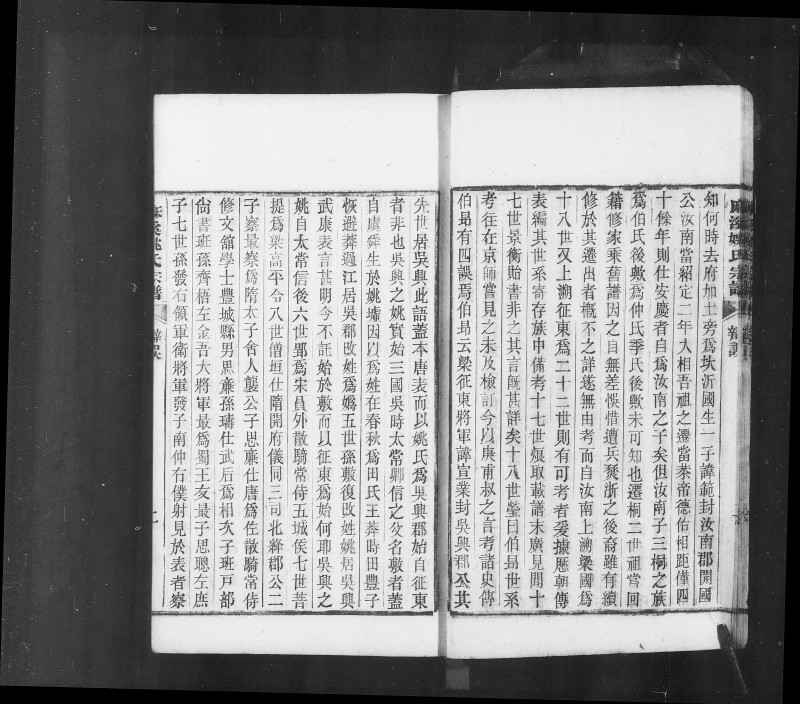 麻溪姚氏宗譜
辯誤
知何時去府加土旁爲坎沂國生一子諱範封汝南郡開國
公汝南當紹定二年入相吾祖之遷當恭帝德佑相距僅四
十餘年則仕安慶者自爲汝南之子矣但汝南子三桐之族
爲伯氏後歟爲仲氏季氏後歟未可知也遷桐二世祖嘗回
籍修家乘舊譜因之自無差悞惜遭兵燹浙之後裔雖有續
修於其遷出者概不之詳遂無由考而自汝南上溯梁國爲
十八世又上溯征東爲二十二世則有可考者爰據歷朝傳
表編其世系寄存族中備考十七世煩取載譜末廣見聞十
七世景衡貽書非之其言旣甚詳矣十八世瑩曰伯昂世系
考往在京師嘗見之未及檢討今以庚甫叔之言考諸史傳
伯昂有四誤焉伯昂云梁征東將軍諱宣業封吳興郡公其
先世居吳興此語蓋本唐表而以姚氏爲吳興郡始自征東
者非也吳興之姚實始三國吳時太常卿信之父名敷者蓋
自虞舜生於姚墟因以爲姓在春秋爲田氏王莽時田豐子
恢避莽過江居吳郡改姓爲嬀五世孫敷復改姓姚居吳興
武康表言甚明今不託始於敷而以征東爲始何耶吳興之
姚自太常信後六世郢爲宋員外散騎常侍五城侯七世菩
提爲梁高平令八世僧垣仕隋開府儀同三司北絳郡公二
子察最察爲隋太子舍人襲公子思廉仕唐爲佐散騎常侍
修文舘學士豐城縣男思亷孫璹仕武后爲相次子班戸部
尙書班孫齊梧左金吾大將軍最爲蜀王友最子思聰左庶
子七世孫發右領軍衛將軍發子南仲右僕射見於表者察
麻溪姚氏宗譜
辯誤
二